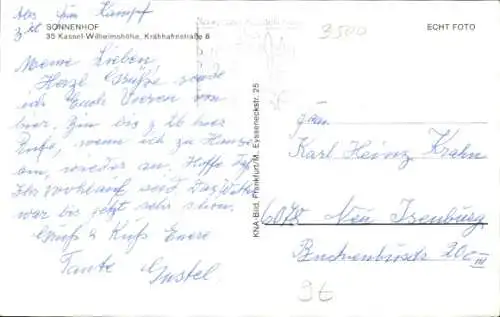 Kampf
3500
SONNENHOF
ECHT FOTO
35 Kassel-Wilhelmshöhe, Krähhahnstraße 8
Meine Lieben,
Herzl. Grüße sende
ich Euch Vieren von
hier. Bin bis z. 26 hier
wenn ich zu Hause
an, wieder an. Hoffe daß
Ihr wohlauf seid. Das Wetter
war bis jetzt sehr schön.
Gruß & Kuß Eure
Tante Gustel
KNA-Bild, Frankfurt/M. Eysseneckstr. 25
Fam.
Karl Heinz Krahn
6078 Neu Isenburg
Buchenbusch 20c III
9t